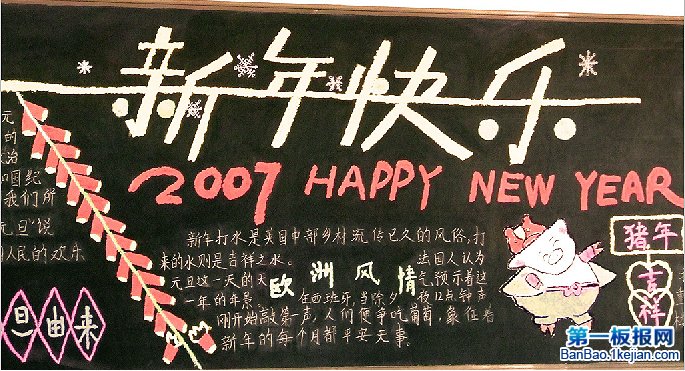 新年快乐
2007 HAPPY NEW YEAR
元
的
治
和国纪
我们所
元旦"说
人民的欢乐
旦由来
新年打水是英国中部乡村流传已久的风俗,打
来的水则是吉祥之水。 法国人认为
元旦这一天的天 气,预示着这
一年的年景。 在西班牙,当除夕夜12点钟声
刚开始敲第一声,人们便争吃葡萄,象征着
新年的每个月都平安无事。
欧洲风情
猪年
吉
祥
第一板报网
BanBao.1kejian.com